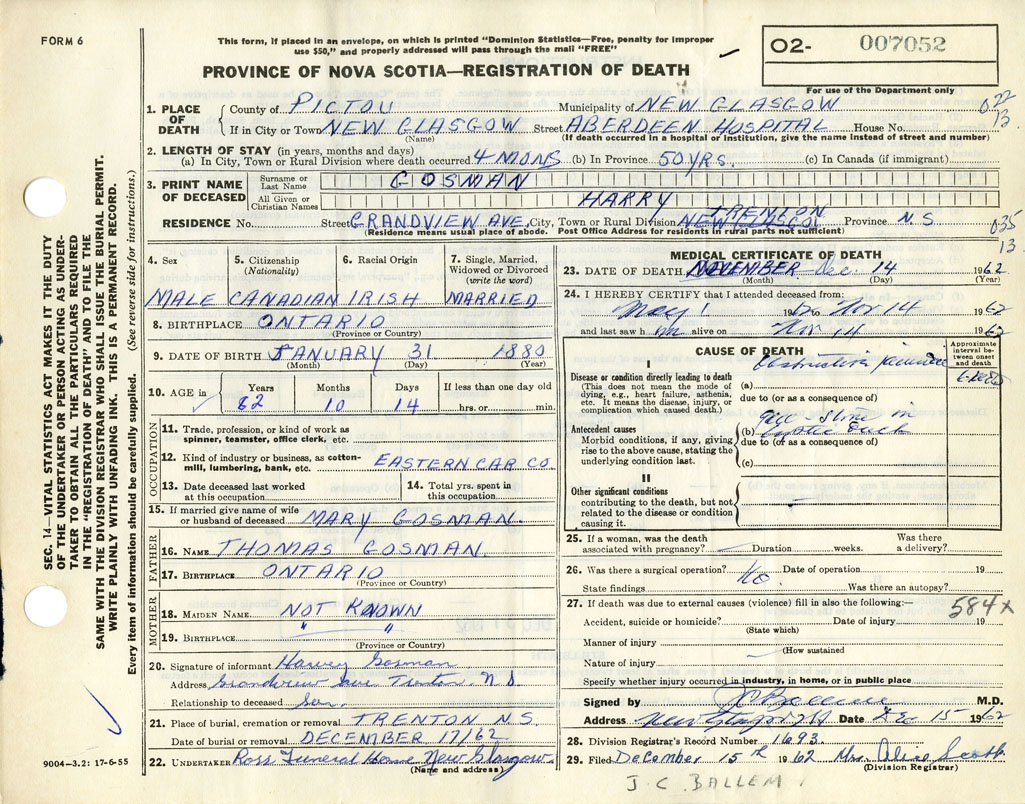 FORM 6
This form, if placed in an envelope, on which is printed "Dominion Statistics—Free, penalty for improper
use $50," and properly addressed will pass through the mail "FREE"
O2- 007052
PROVINCE OF NOVA SCOTIA—REGISTRATION OF DEATH
For use of the Department only
1. PLACE OF DEATH County of PICTOU Municipality of NEW GLASGOW 022
If in City or Town NEW GLASGOW Street ABERDEEN HOSPITAL House No. 13
(Name) (If death occurred in a hospital or institution, give the name instead of street and number)
2. LENGTH OF STAY (in years, months and days)
(a) In City, Town or Rural Division where death occurred 4 MONS (b) In Province 50 YRS. (c) In Canada (if immigrant)
3. PRINT NAME OF DECEASED Surname or Last Name GOSMAN
All Given or Christian Names HARRY
TRENTON
RESIDENCE No. Street GRANDVIEW AVE. City, Town or Rural Division NEW GLASGO Province N.S. 035
(Residence means usual place of abode. Post Office Address for residents in rural parts not sufficient) 13
4. Sex 5. Citizenship (Nationality) 6. Racial Origin 7. Single, Married, Widowed or Divorced (write the word)
MALE CANADIAN IRISH MARRIED
8. BIRTHPLACE ONTARIO
(Province or Country)
9. DATE OF BIRTH JANUARY 31 1880
(Month) (Day) (Year)
10. AGE in Years Months Days If less than one day old
82 10 14 hrs. or min.
OCCUPATION
11. Trade, profession, or kind of work as
spinner, teamster, office clerk, etc.
12. Kind of industry or business, as cotton-
mill, lumbering, bank, etc. EASTERN CAR CO
13. Date deceased last worked at this occupation 14. Total yrs. spent in this occupation
15. If married give name of wife
or husband of deceased MARY GOSMAN.
FATHER
16. NAME THOMAS GOSMAN.
17. BIRTHPLACE ONTARIO
(Province or Country)
MOTHER
18. MAIDEN NAME NOT KNOWN
19. BIRTHPLACE " "
(Province or Country)
20. Signature of informant Harvey Gosman
Address Grandview Ave Trenton N.S.
Relationship to deceased Son.
21. Place of burial, cremation or removal TRENTON N.S.
Date of burial or removal DECEMBER 17/62
22. UNDERTAKER Ross Funeral Home New Glasgow
(Name and address)
MEDICAL CERTIFICATE OF DEATH
23. DATE OF DEATH NOVEMBER Dec. 14 1962
(Month) (Day) (Year)
24. I HEREBY CERTIFY that I attended deceased from:
May 1 1962 to Nov 14 1962
and last saw him alive on Nov 14 1962
CAUSE OF DEATH
Approximate interval between onset and death
I
Disease or condition directly leading to death
(This does not mean the mode of
dying, e.g., heart failure, asthenia,
etc. It means the disease, injury, or
complication which caused death.)
(a) Obstructive jaundice
due to (or as a consequence of)
Antecedent causes
Morbid conditions, if any, giving
rise to the above cause, stating the
underlying condition last.
(b) Gall-stone in cystic duct
due to (or as a consequence of)
(c)
II
Other significant conditions
contributing to the death, but not
related to the disease or condition
causing it.
25. If a woman, was the death associated with pregnancy? Duration weeks. Was there a delivery?
26. Was there a surgical operation? No Date of operation 19
State findings Was there an autopsy?
27. If death was due to external causes (violence) fill in also the following:— 584x
Accident, suicide or homicide? Date of injury 19
(State which)
Manner of injury
(How sustained
Nature of injury
Specify whether injury occurred in industry, in home, or in public place
Signed by JCBallem M.D.
Address New Glasgow NS Date Dec 15 1962
28. Division Registrar's Record Number 1693.
29. Filed December 15th 1962 Mrs.
(Division Registrar)
J. C. BALLEM
SEC. 14—VITAL STATISTICS ACT MAKES IT THE DUTY
OF THE UNDERTAKER OR PERSON ACTING AS UNDER-
TAKER TO OBTAIN ALL THE PARTICULARS REQUIRED
IN THE "REGISTRATION OF DEATH" AND TO FILE THE
SAME WITH THE DIVISION REGISTRAR WHO SHALL ISSUE THE BURIAL PERMIT.
WRITE PLAINLY WITH UNFADING INK. THIS IS A PERMANENT RECORD.
Every item of information should be carefully supplied. (See reverse side for instructions.)
9004—3.2: 17-6-55